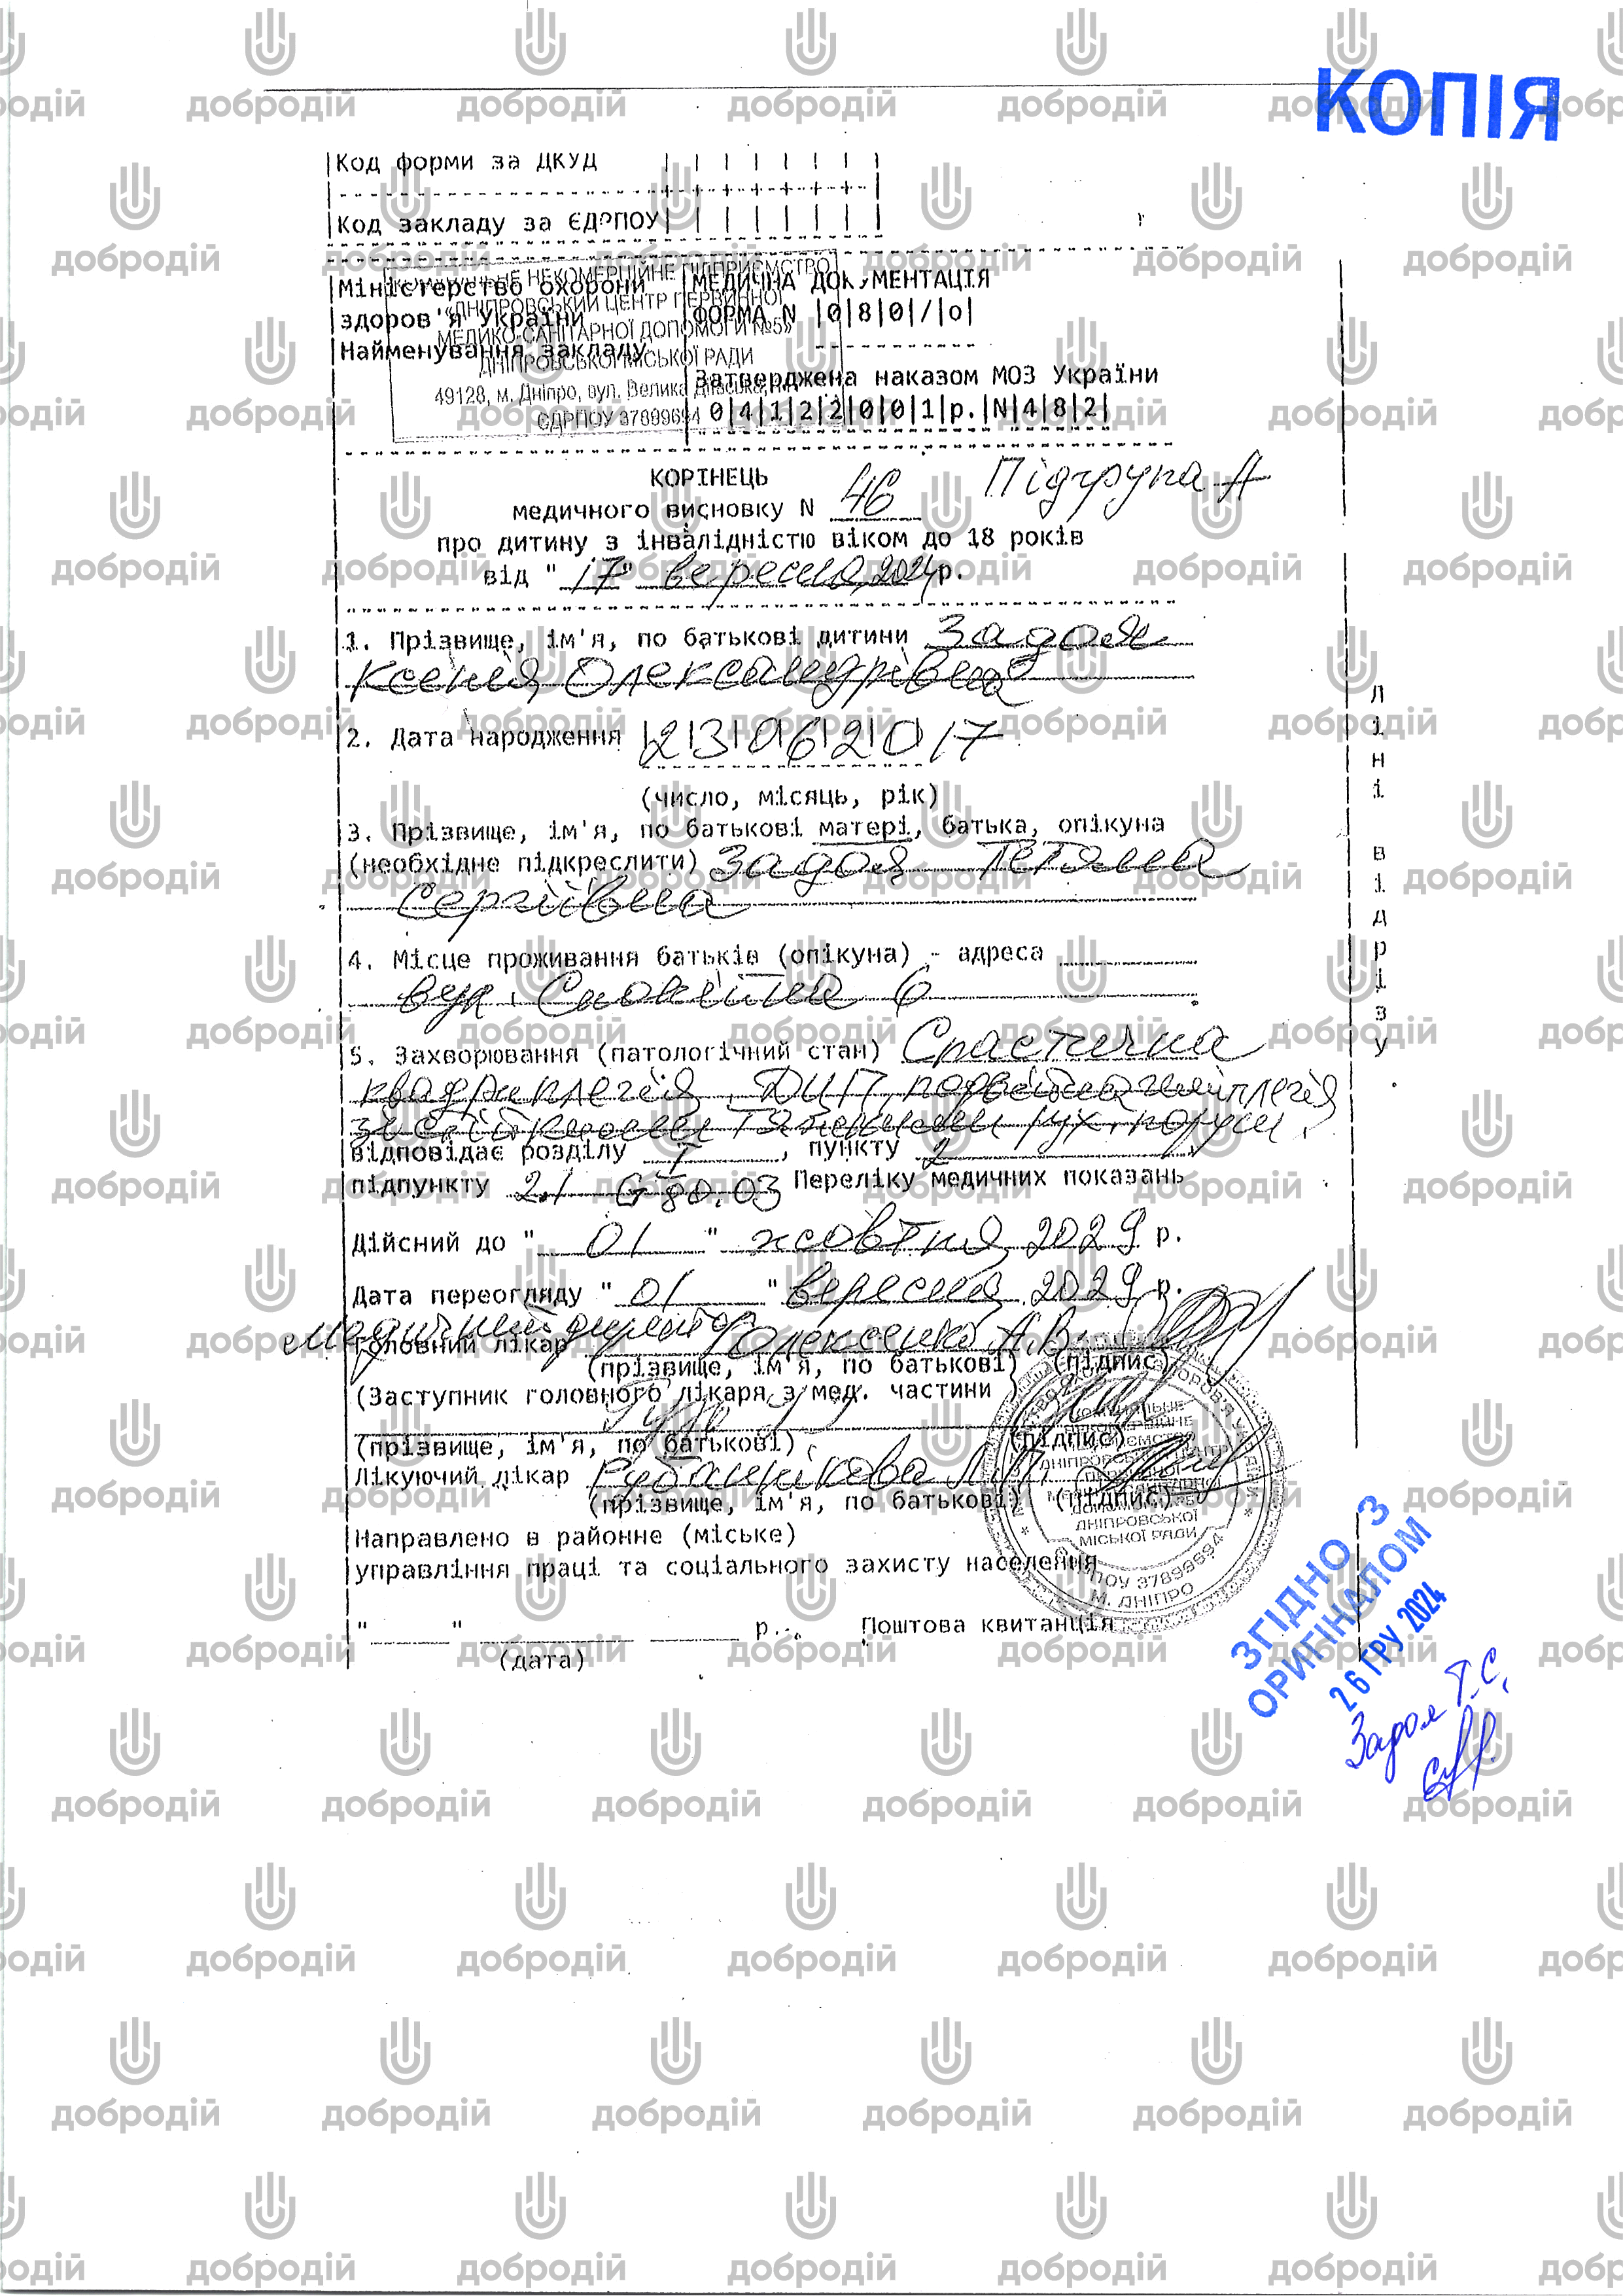 КОПІЯ
Код форми за ДКУД
Код закладу за ЄДРПОУ
КОМУНАЛЬНЕ НЕКОМЕРЦІЙНЕ ПІДПРИЄМСТВО
«ДНІПРОВСЬКИЙ ЦЕНТР ПЕРВИННОЇ
МЕДИКО-САНІТАРНОЇ ДОПОМОГИ №5»
ДНІПРОВСЬКОЇ МІСЬКОЇ РАДИ
49128, м. Дніпро, вул. Велика
ЄДРПОУ 37899694
Міністерство охорони
здоров'я України
Найменування закладу
МЕДИЧНА ДОКУМЕНТАЦІЯ
ФОРМА N |0|8|0|/|о|
Затверджена наказом МОЗ України
0|4|1|2|2|0|0|1|р.|N|4|8|2|
КОРІНЕЦЬ Підгрупа А
медичного висновку N 46
про дитину з інвалідністю віком до 18 років
від "17" вересня 2024р.
1. Прізвище, ім'я, по батькові дитини Задоя
Ксенія Олександрівна
2. Дата народження |2|3|0|6|2|0|17
(число, місяць, рік)
3. Прізвище, ім'я, по батькові матері, батька, опікуна
(необхідне підкреслити) Задоя Тетяна
Сергіївна
4. Місце проживання батьків (опікуна) - адреса
вул. 6
5. Захворювання (патологічний стан) Спастична
квадриплегія, ДЦП, подвійна геміплегія
зі стійкими тяжкими рух. поруш.
відповідає розділу I, пункту 2
підпункту 2.1 G 80.03 Переліку медичних показань
Дійсний до "01" жовтня 2029 р.
Дата переогляду "01" вересня 2029 р.
Медичний директор
Головний лікар Олексенко А.В.
(прізвище, ім'я, по батькові) (підпис)
(Заступник головного лікаря з мед. частини
(прізвище, ім'я, по батькові) (підпис)
Лікуючий лікар
(прізвище, ім'я, по батькові) (підпис)
Направлено в районне (міське)
управління праці та соціального захисту населення
" " р. Поштова квитанція
(дата)
Лінія відрізу
ДНІПРОВСЬКОЇ
МІСЬКОЇ РАДИ
37899694
М. ДНІПРО
ЗГІДНО З
ОРИГІНАЛОМ
26 ГРУ 2024
Задоя Т.С.
добродій